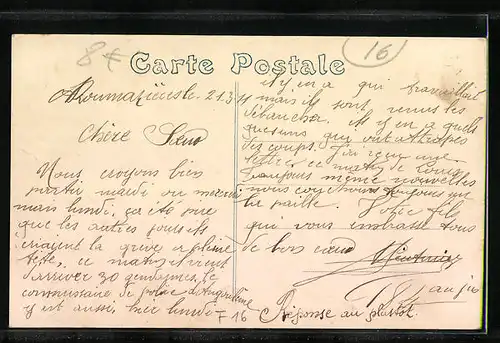 8f
16
Carte Postale
Roumazières 21.3.11
Chère Sœur
Nous croyons bien
partir mardi ou mercredi
mais lundi, ça été pire
que les autres jours ils
criaient la grève a pleine
tête, ce matin vient
d'arriver 30 gendarmes, le
commissaire de police d'Angoulême
y est aussi, hier lundi
il y en a qui travaillait
mais ils sont venus les
débaucher. Il y en a quelques
quesuns qui ont attrapés
des coups. J'ai reçu une
lettre ce matin de
toujours même nouvelles
nous couchons toujours sur
la paille. Votre fils
qui vous embrasse tous
de bon cœur
F 16
Réponse au plustôt.